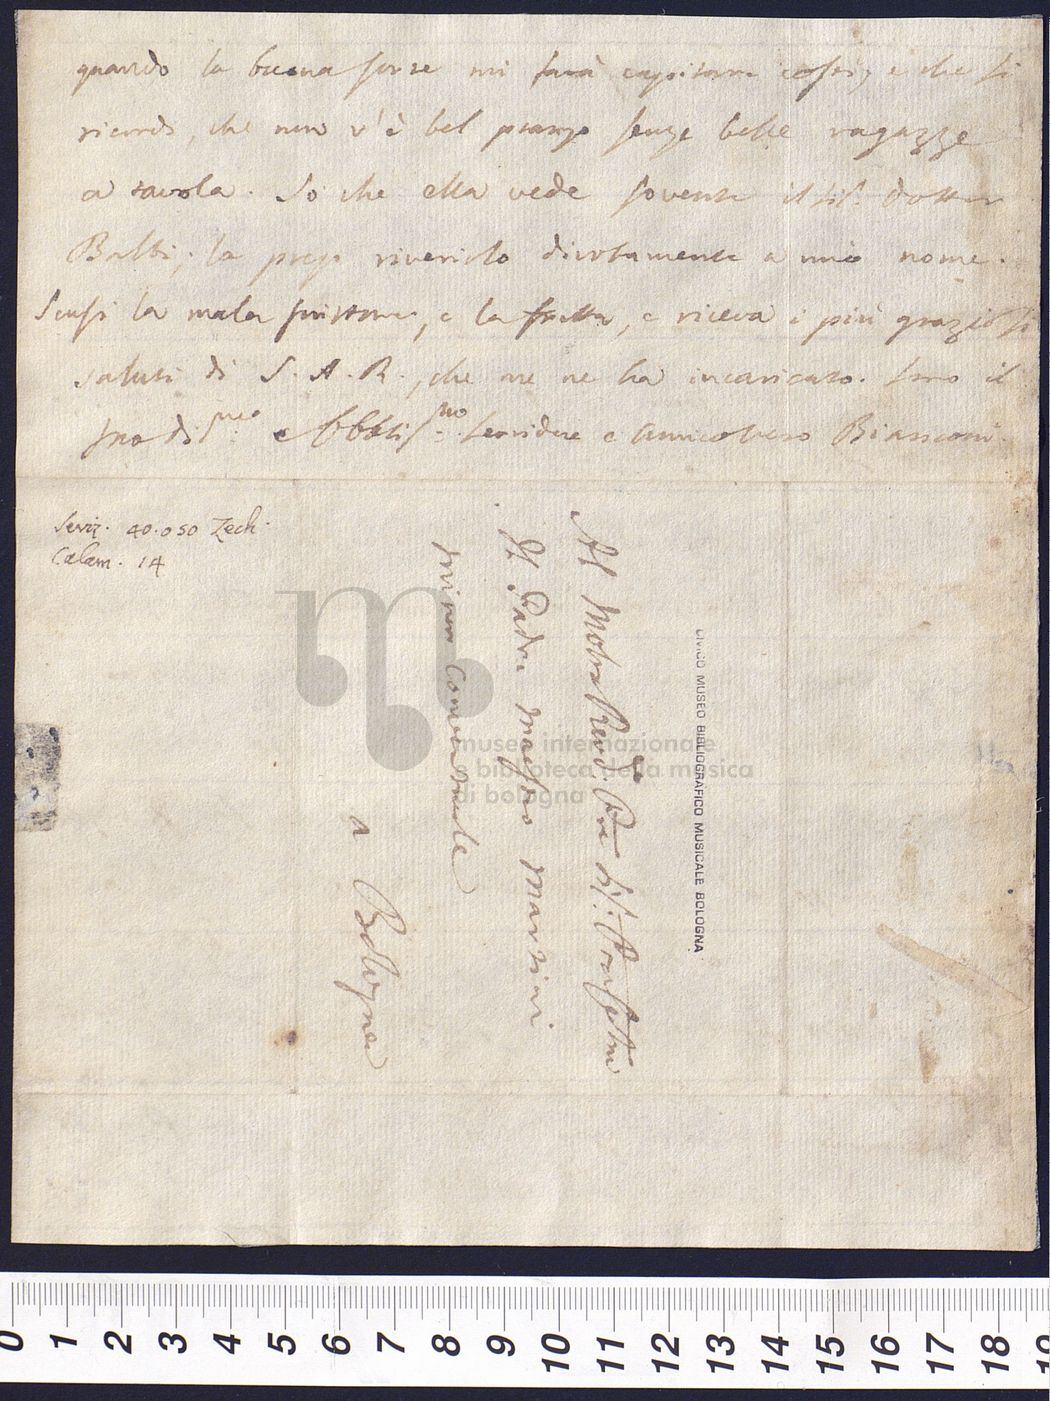 quando la buona sorte mi farà capitare costì, e che si
ricordi, che non v'è bel pranzo senza belle ragazze
a tavola. So che ella vede sovente il Sig. Dottor
Balbi; la prego riverirlo divotamente a mio nome.
Scusi la mala scrittura, e la fretta, e riceva i più graziosi
saluti di S. A. R., che me ne ha incaricato. Sono il
suo di^mo e Obbli^mo Servidore e Amico vero Bianconi
40.050 Zech.
Calam. 14
Al Molto Revd.^do Pre Sig.
Il Padre Maestro Martini
Minor Conventuale
a Bologna
CIVICO MUSEO BIBLIOGRAFICO MUSICALE BOLOGNA
museo internazionale
e biblioteca della musica
di bologna
0 1 2 3 4 5 6 7 8 9 10 11 12 13 14 15 16 17 18